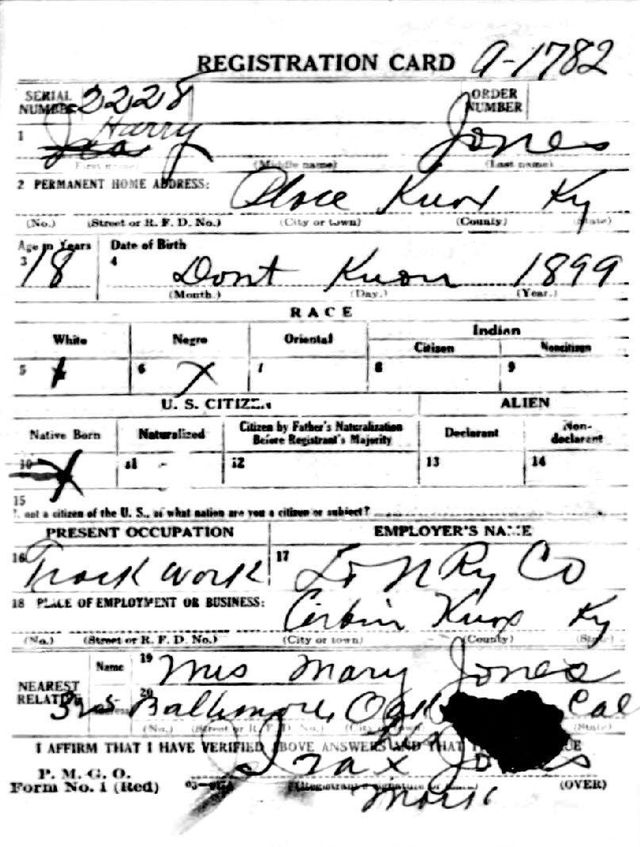 REGISTRATION CARD A-1782
SERIAL NUMBER 2228 ORDER NUMBER
1 Harry Jones
(First name) (Middle name) (Last name)
2 PERMANENT HOME ADDRESS: Place Knox Ky
(No.) (Street or R. F. D. No.) (City or town) (County) (State)
Age in Years Date of Birth
3 18 4 Dont Know 1899
(Month.) (Day.) (Year.)
RACE
White Negro Oriental Indian
Citizen Noncitizen
5 6 X 7 8 9
U. S. CITIZEN ALIEN
Native Born Naturalized Citizen by Father's Naturalization Before Registrant's Majority Declarant Non-declarant
10 X 11 12 13 14
15
If not a citizen of the U. S., of what nation are you a citizen or subject?
PRESENT OCCUPATION EMPLOYER'S NAME
16 Track work 17 L & N Ry Co
18 PLACE OF EMPLOYMENT OR BUSINESS: Corbin Knox Ky
(No.) (Street or R. F. D. No.) (City or town) (County) (State)
NEAREST RELATIVE Name 19 Mrs Mary Jones
Address 20 Baltimore, Cal
(No.) (Street or R. F. D. No.) (City or town) (State)
I AFFIRM THAT I HAVE VERIFIED ABOVE ANSWERS AND THAT
P. M. G. O.
Form No. 1 (Red) Jones (OVER)
(Registrant's signature or mark)
mark